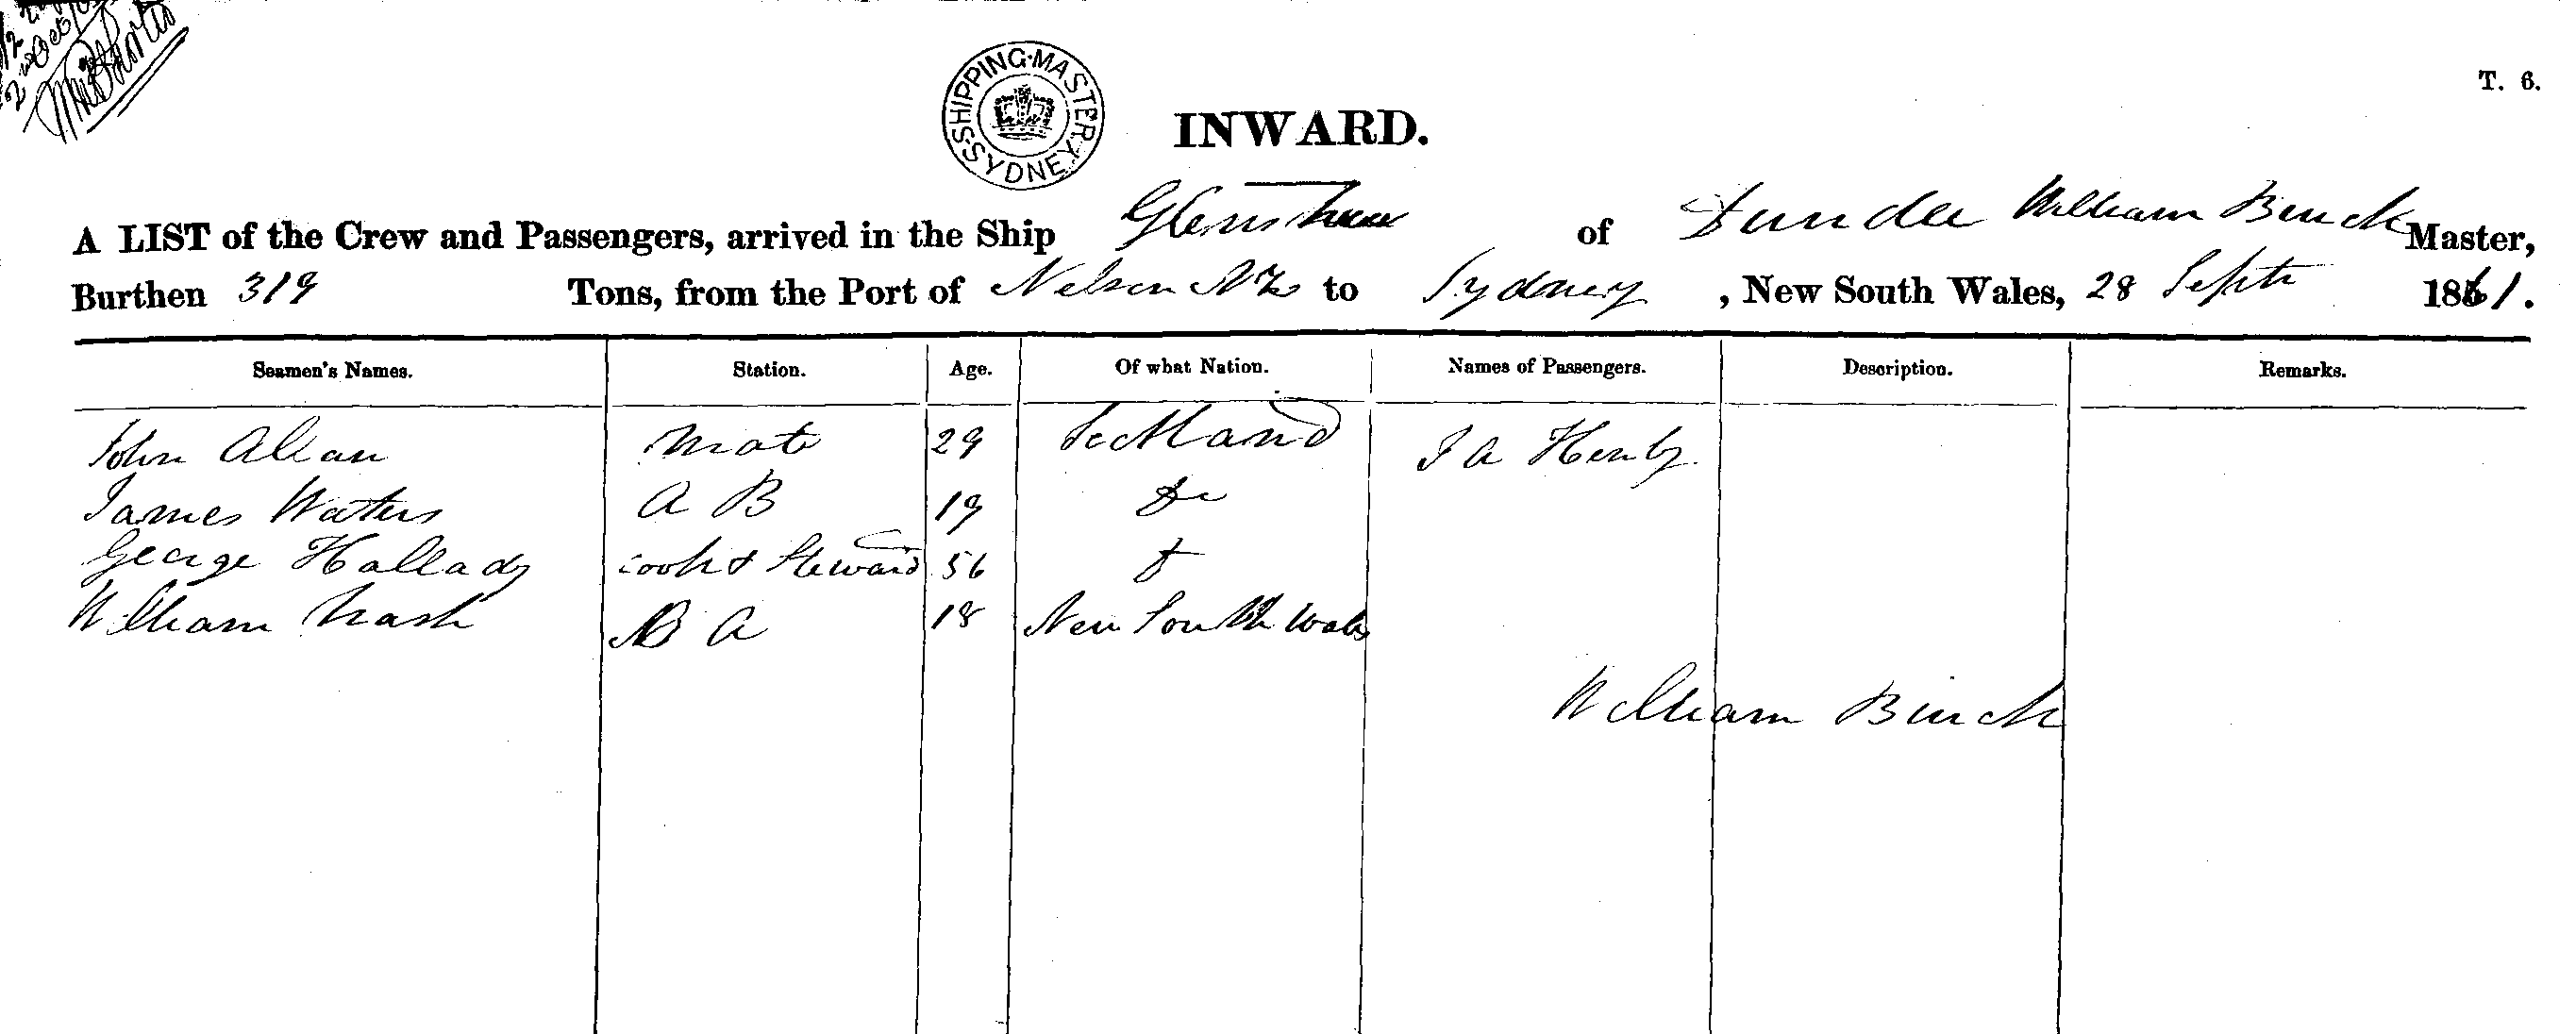 SHIPPING·MASTER·SYDNEY·
T. 6.
INWARD.
A LIST of the Crew and Passengers, arrived in the Ship of Dundee William Binck Master,
Burthen 319 Tons, from the Port of Nelson NZ to Sydney, New South Wales, 28 Septr 1861.
Seamen's Names. Station. Age. Of what Nation. Names of Passengers. Description. Remarks.
John Allan Mate 29 Scotland J A Henly.
James Waters A B 19 Do
George Hallady Cook & Steward 56
William Nash 18 New South Wales
William Binck